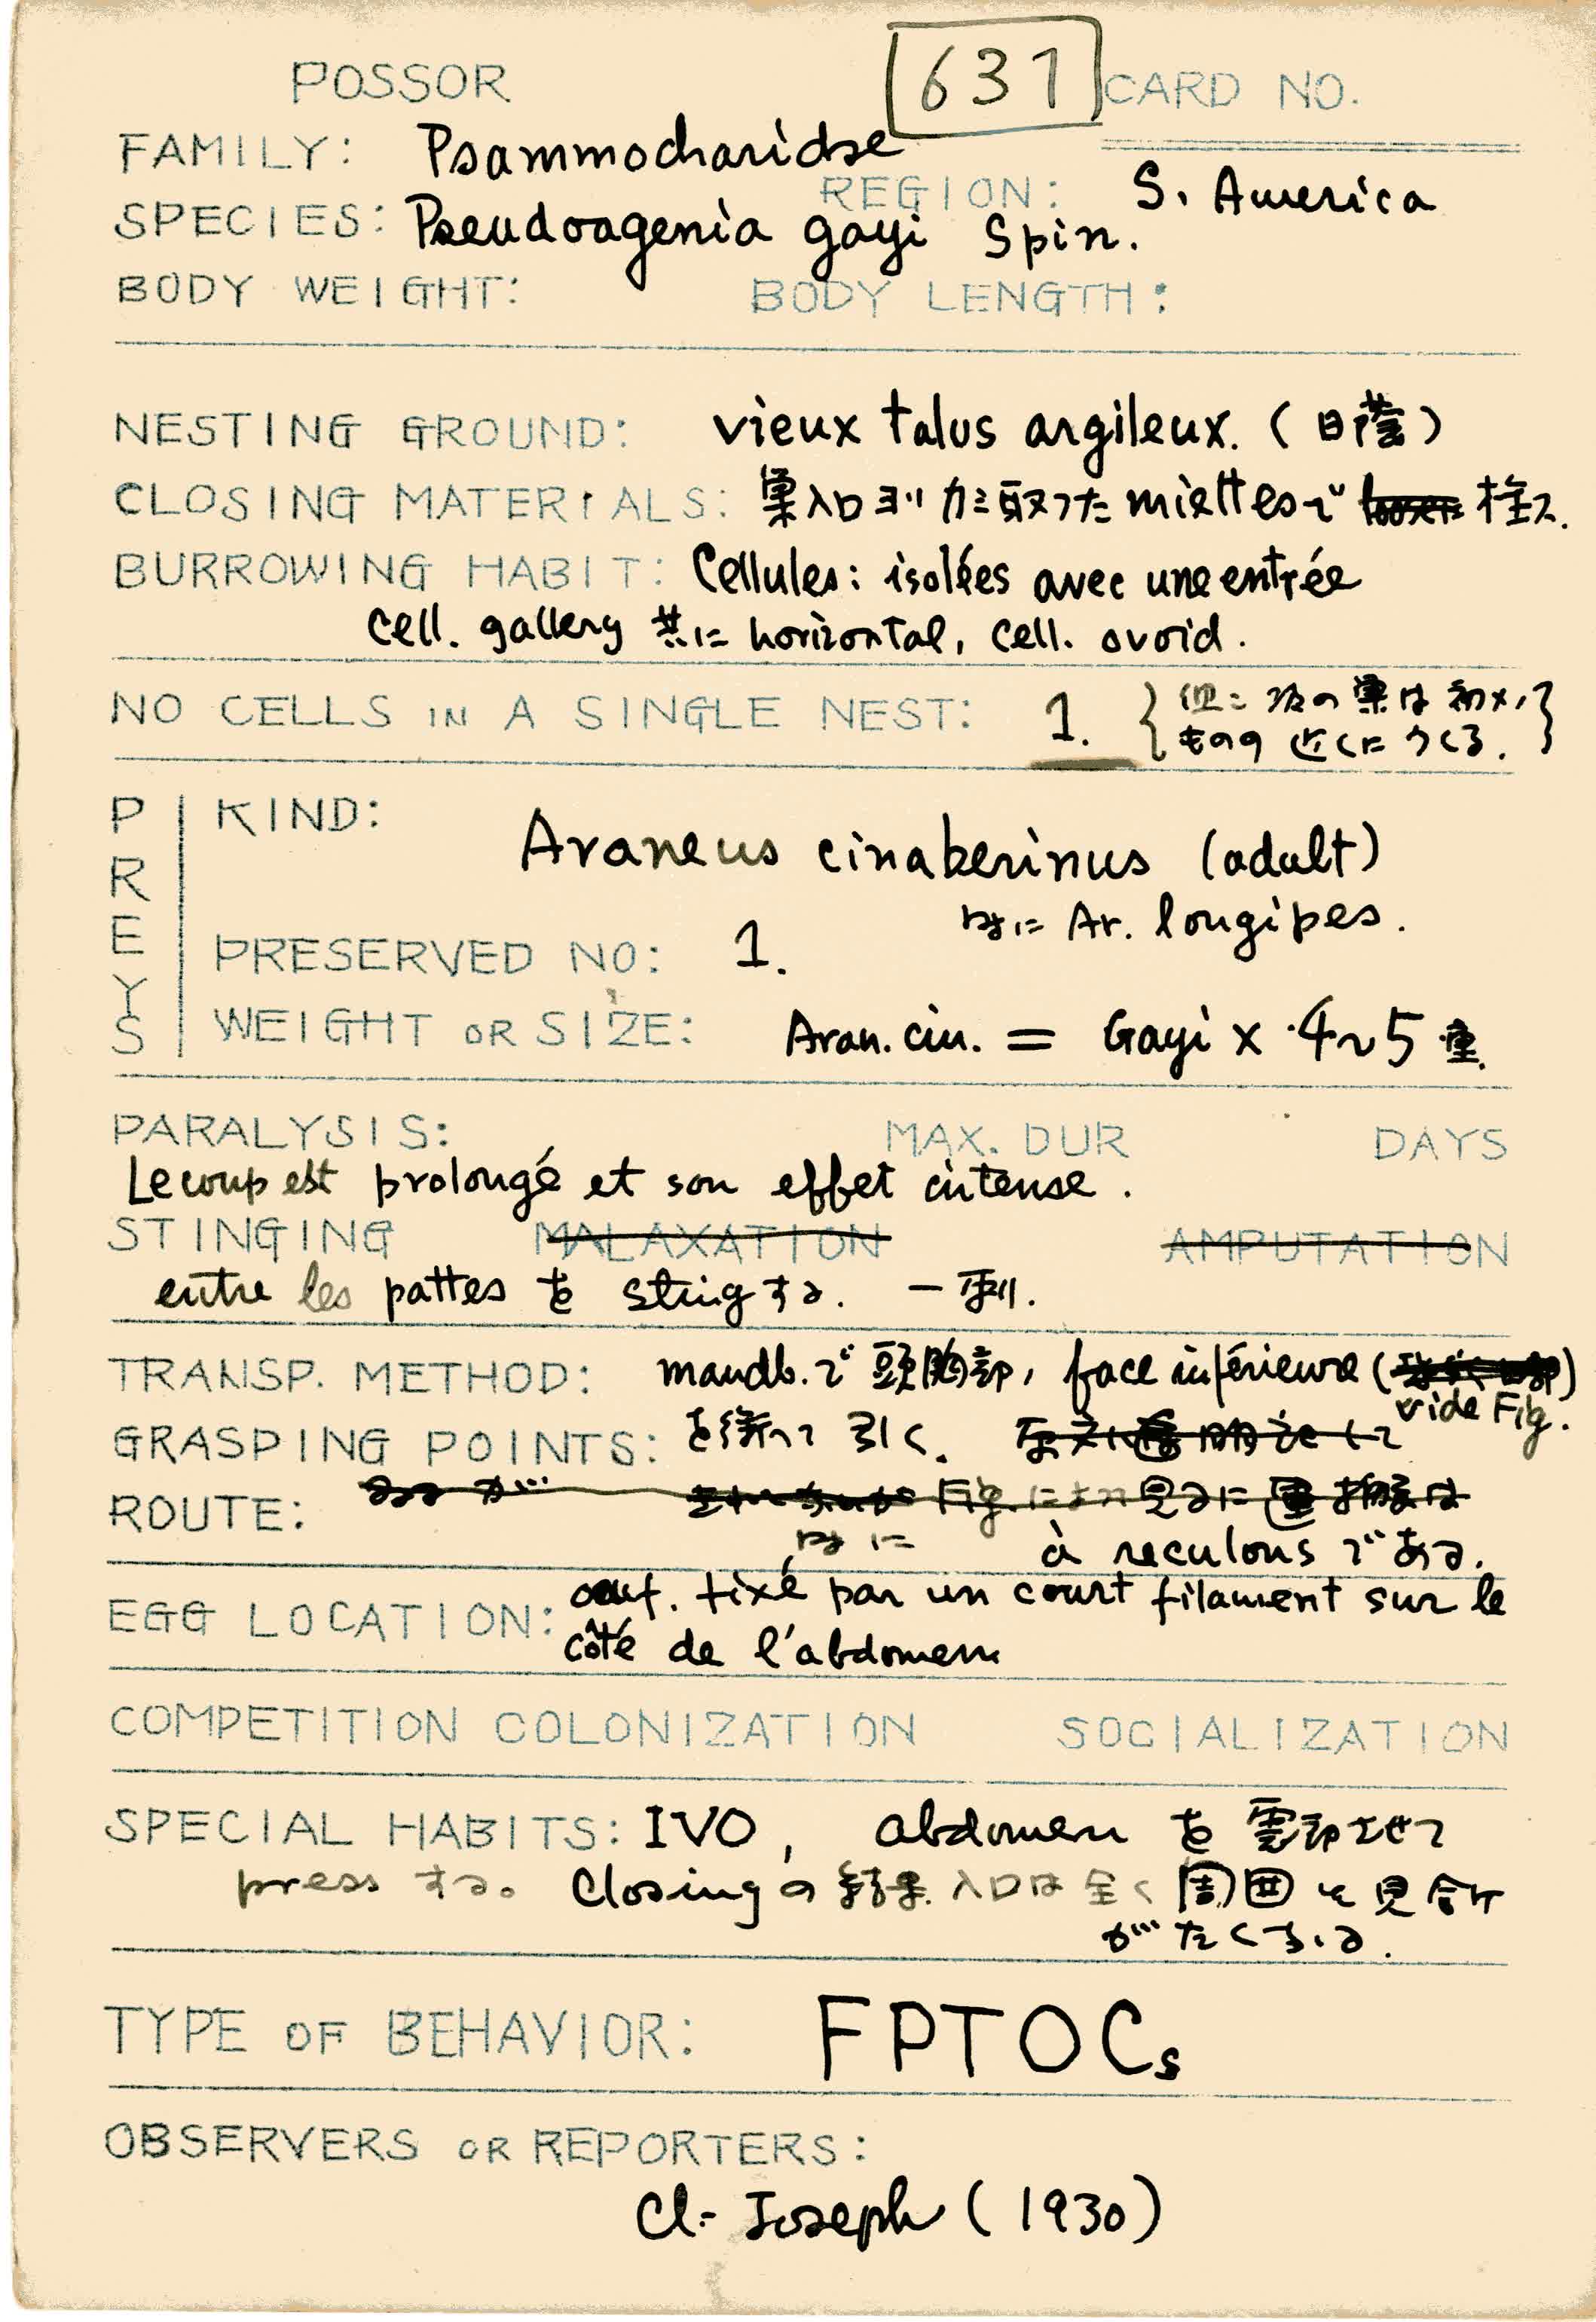 POSSOR 631 CARD NO.
FAMILY: Psammocharidae
REGION: S. America
SPECIES: Pseudoagenia gayi Spin.
BODY WEIGHT: BODY LENGTH:
NESTING GROUND: vieux talus argileux. (日蔭)
CLOSING MATERIALS: 巣入口ヨリカミ取った miettesで 栓ス.
BURROWING HABIT: Cellules: isolées avec une entrée
cell. gallery 共に horizontal, cell. ovoid.
NO CELLS IN A SINGLE NEST: 1. {但シ次の巣は初メノ
ものの近くにつくる.}
PREYS
KIND: Araneus cinaberinus (adult)
時に Ar. longipes.
PRESERVED NO: 1.
WEIGHT OR SIZE: Aran. cin. = Gayi x 4~5 重.
PARALYSIS: MAX. DUR DAYS
Le coup est prolongé et son effet intense.
STINGING MALAXATION AMPUTATION
entre les pattes を stingする. 一刺.
TRANSP. METHOD: mandb.で頭胸部, face inférieure (
vide Fig.)
GRASPING POINTS: を 引く.
ROUTE:
時に à reculons である.
EGG LOCATION: oeuf. fixé par un court filament sur le
côté de l'abdomen
COMPETITION COLONIZATION SOCIALIZATION
SPECIAL HABITS: IVO, abdomen を震動させて
pressする。 Closingの結果入口は全く周囲と見分ケ
がたくなる.
TYPE OF BEHAVIOR: FPTOCs
OBSERVERS OR REPORTERS:
Cl. Joseph (1930)